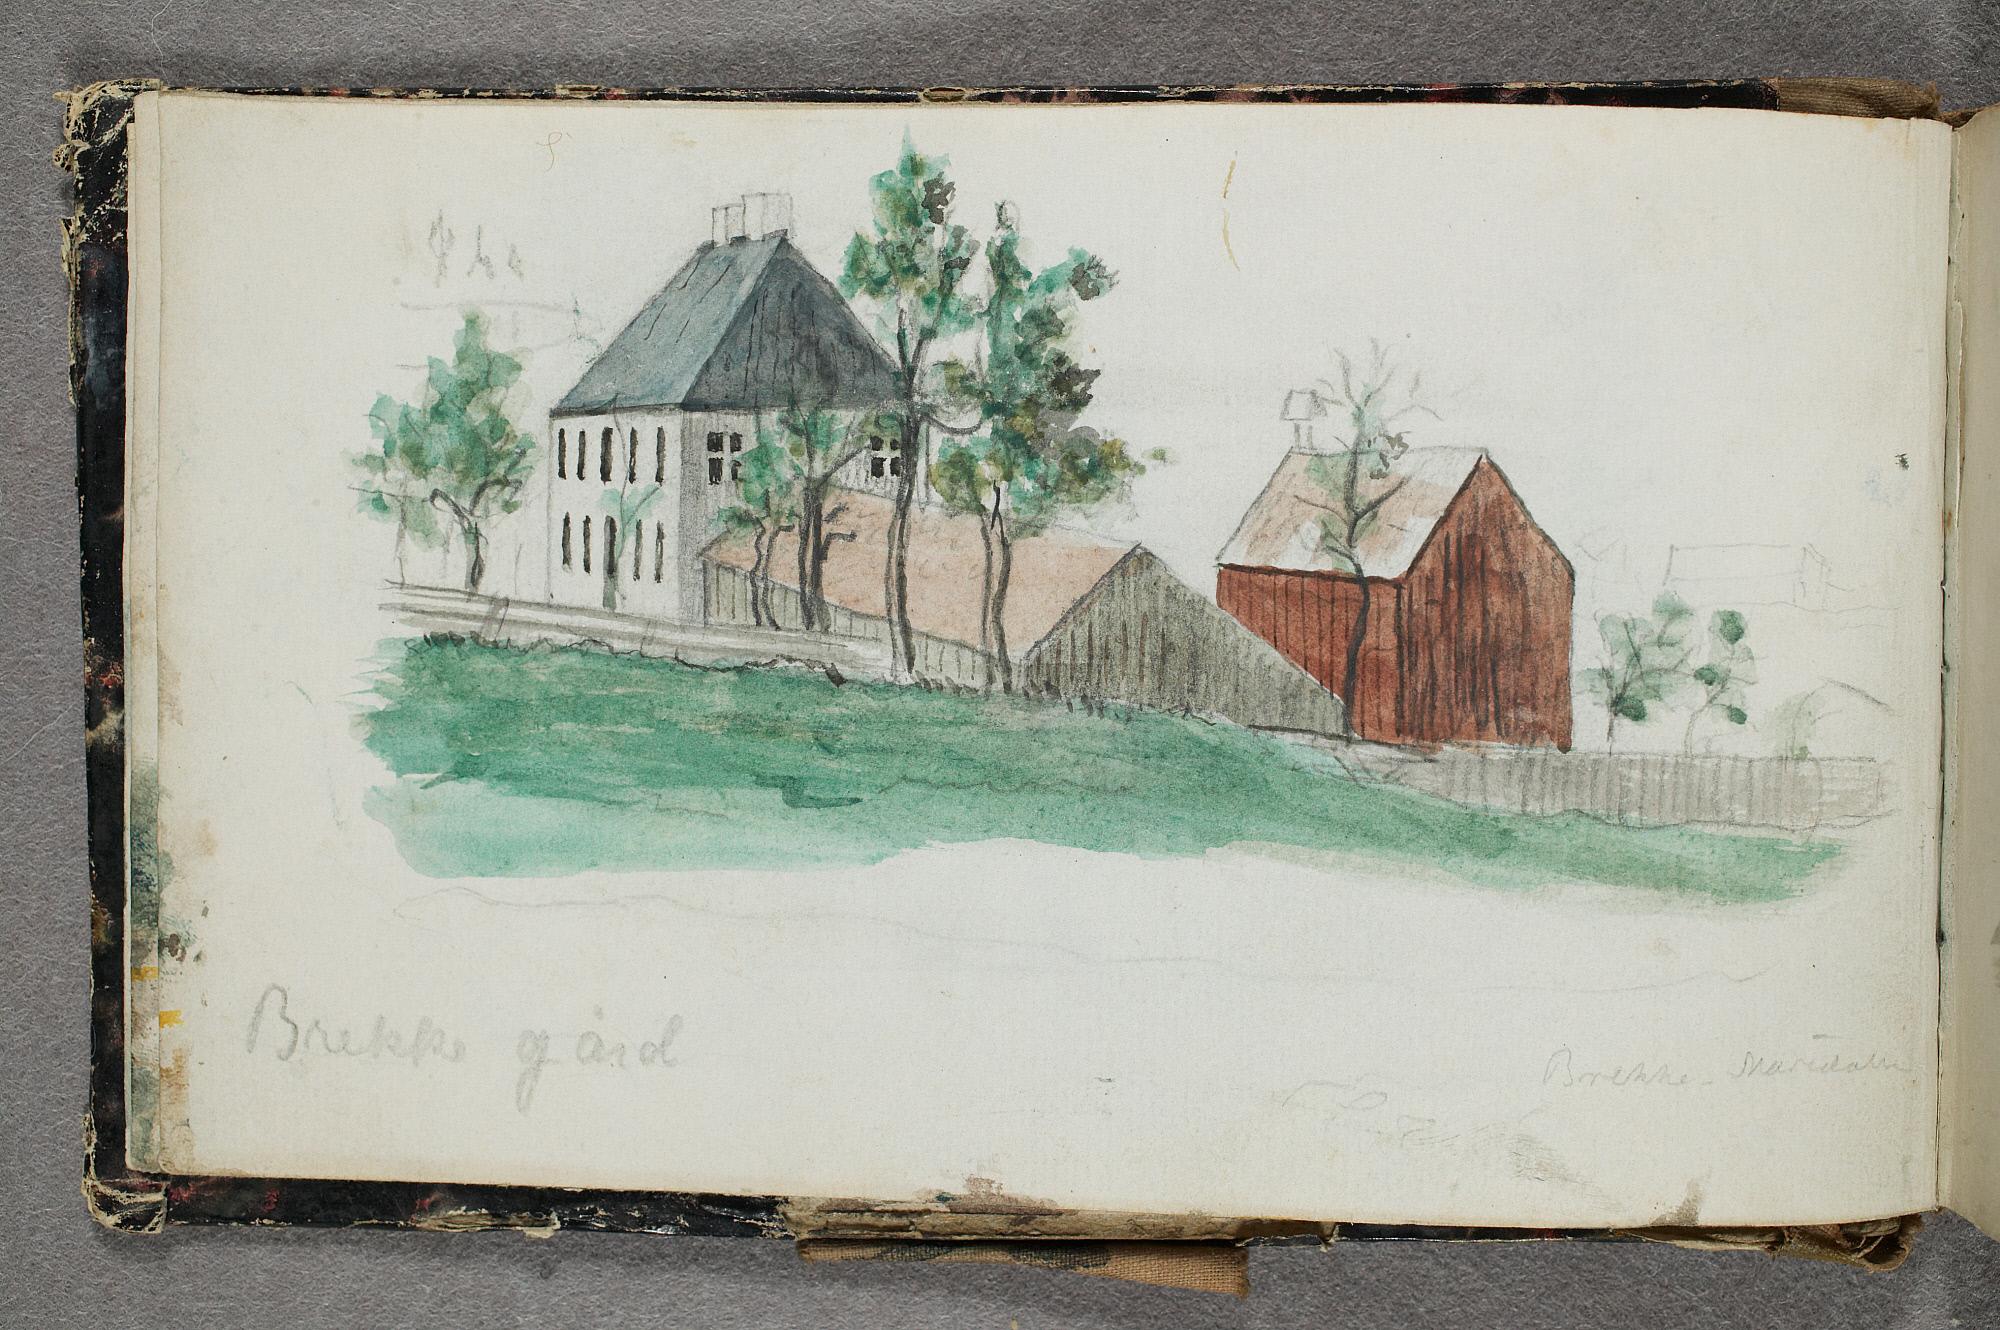 Brekke gård
Brekke - Maridalen